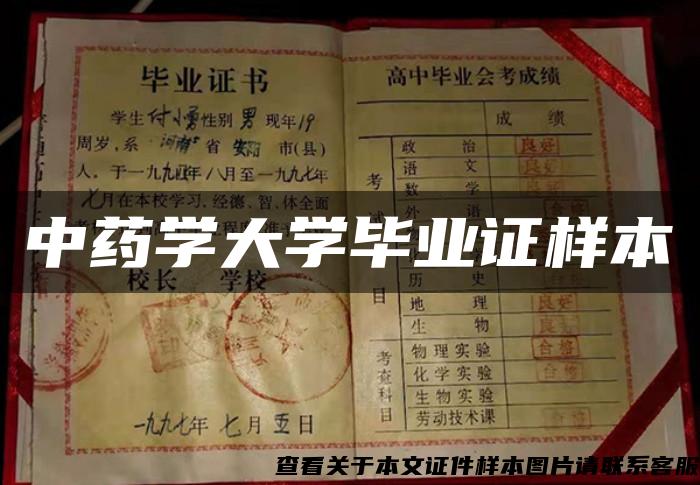 毕业证书
学生付小勇性别男现年19
周岁,系河南省安阳市(县)
人,于一九九四年八月至一九九七年
七月在本校学习,经德、智、体全面
中药学大学毕业证样本
校长 学校
一九九七年七月五日
高中毕业会考成绩
成绩
考试
科目
政治 良好
语文 良好
数学
外语 合格
历史
地理 良好
生物 良好
考查科目
物理实验 合格
化学实验 合格
生物实验
劳动技术课 合格
查看关于本文证件样本图片请联系客服